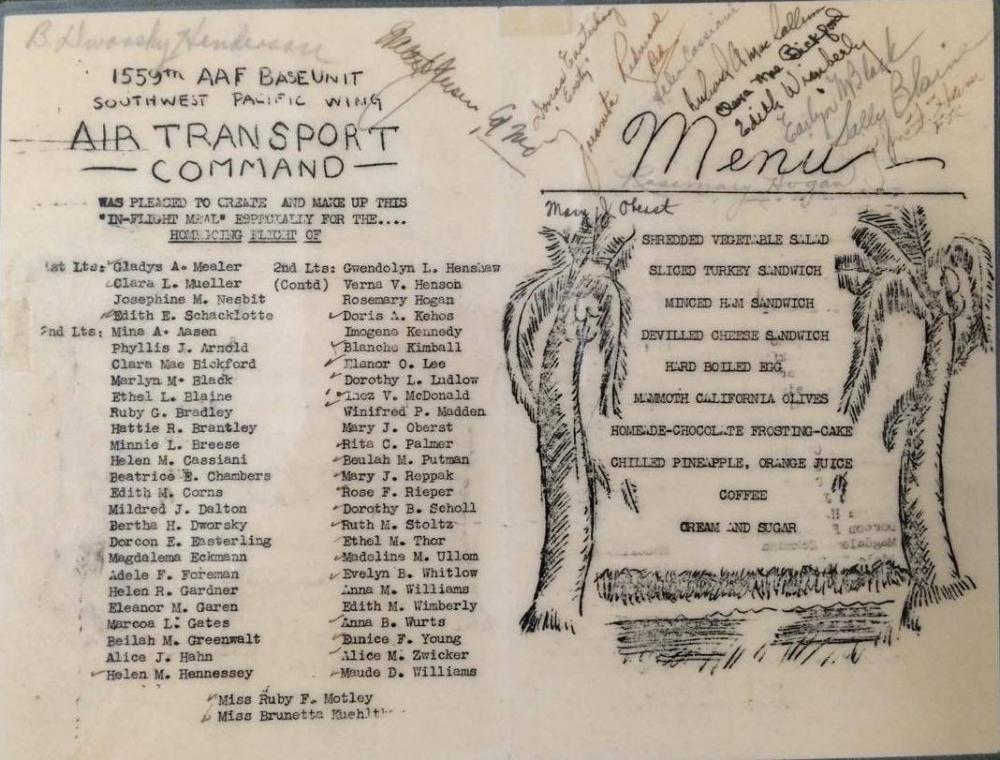 B. Dworsky Henderson
1559th AAF BASE UNIT
SOUTHWEST PACIFIC WING
AIR TRANSPORT
— COMMAND —
WAS PLEASED TO CREATE AND MAKE UP THIS
"IN-FLIGHT MEAL" ESPECIALLY FOR THE....
HOMEGOING FLIGHT OF
1st Lts: Gladys A. Mealer
Clara L. Mueller
Josephine M. Nesbit
Edith E. Schacklotte
2nd Lts: Mina A. Aasen
Phyllis J. Arnold
Clara Mae Bickford
Marlyn M. Black
Ethel L. Blaine
Ruby G. Bradley
Hattie R. Brantley
Minnie L. Breese
Helen M. Cassiani
Beatrice E. Chambers
Edith M. Corns
Mildred J. Dalton
Bertha H. Dworsky
Dorcon E. Easterling
Magdalema Eckmann
Adele F. Foreman
Helen R. Gardner
Eleanor M. Garen
Marcoa L. Gates
Beilah M. Greenwalt
Alice J. Hahn
Helen M. Hennessey
2nd Lts: Gwendolyn L. Henshaw
(Contd) Verna V. Henson
Rosemary Hogan
Doris A. Kehos
Imogene Kennedy
Blanche Kimball
Elanor O. Lee
Dorothy L. Ludlow
Inez V. McDonald
Winifred P. Madden
Mary J. Oberst
Rita C. Palmer
Beulah M. Putman
Mary J. Reppak
Rose F. Rieper
Dorothy B. Scholl
Ruth M. Stoltz
Ethel M. Thor
Madeline M. Ullom
Evelyn B. Whitlow
Anna M. Williams
Edith M. Wimberly
Anna B. Wurts
Eunice F. Young
Alice M. Zwicker
Maude D. Williams
Miss Ruby F. Motley
Miss Brunetta
Helen Cassiani
Clara Mae Bickford
Edith Wimberly
Earlyn M Black
Sally Blaine
Menu
Rosemary Hogan
Mary J. Oberst
SHREDDED VEGETABLE SALAD
SLICED TURKEY SANDWICH
MINCED HAM SANDWICH
DEVILLED CHEESE SANDWICH
HARD BOILED EGG
MAMMOTH CALIFORNIA OLIVES
HOMEADE-CHOCOLATE FROSTING-CAKE
CHILLED PINEAPPLE, ORANGE JUICE
COFFEE
CREAM AND SUGAR